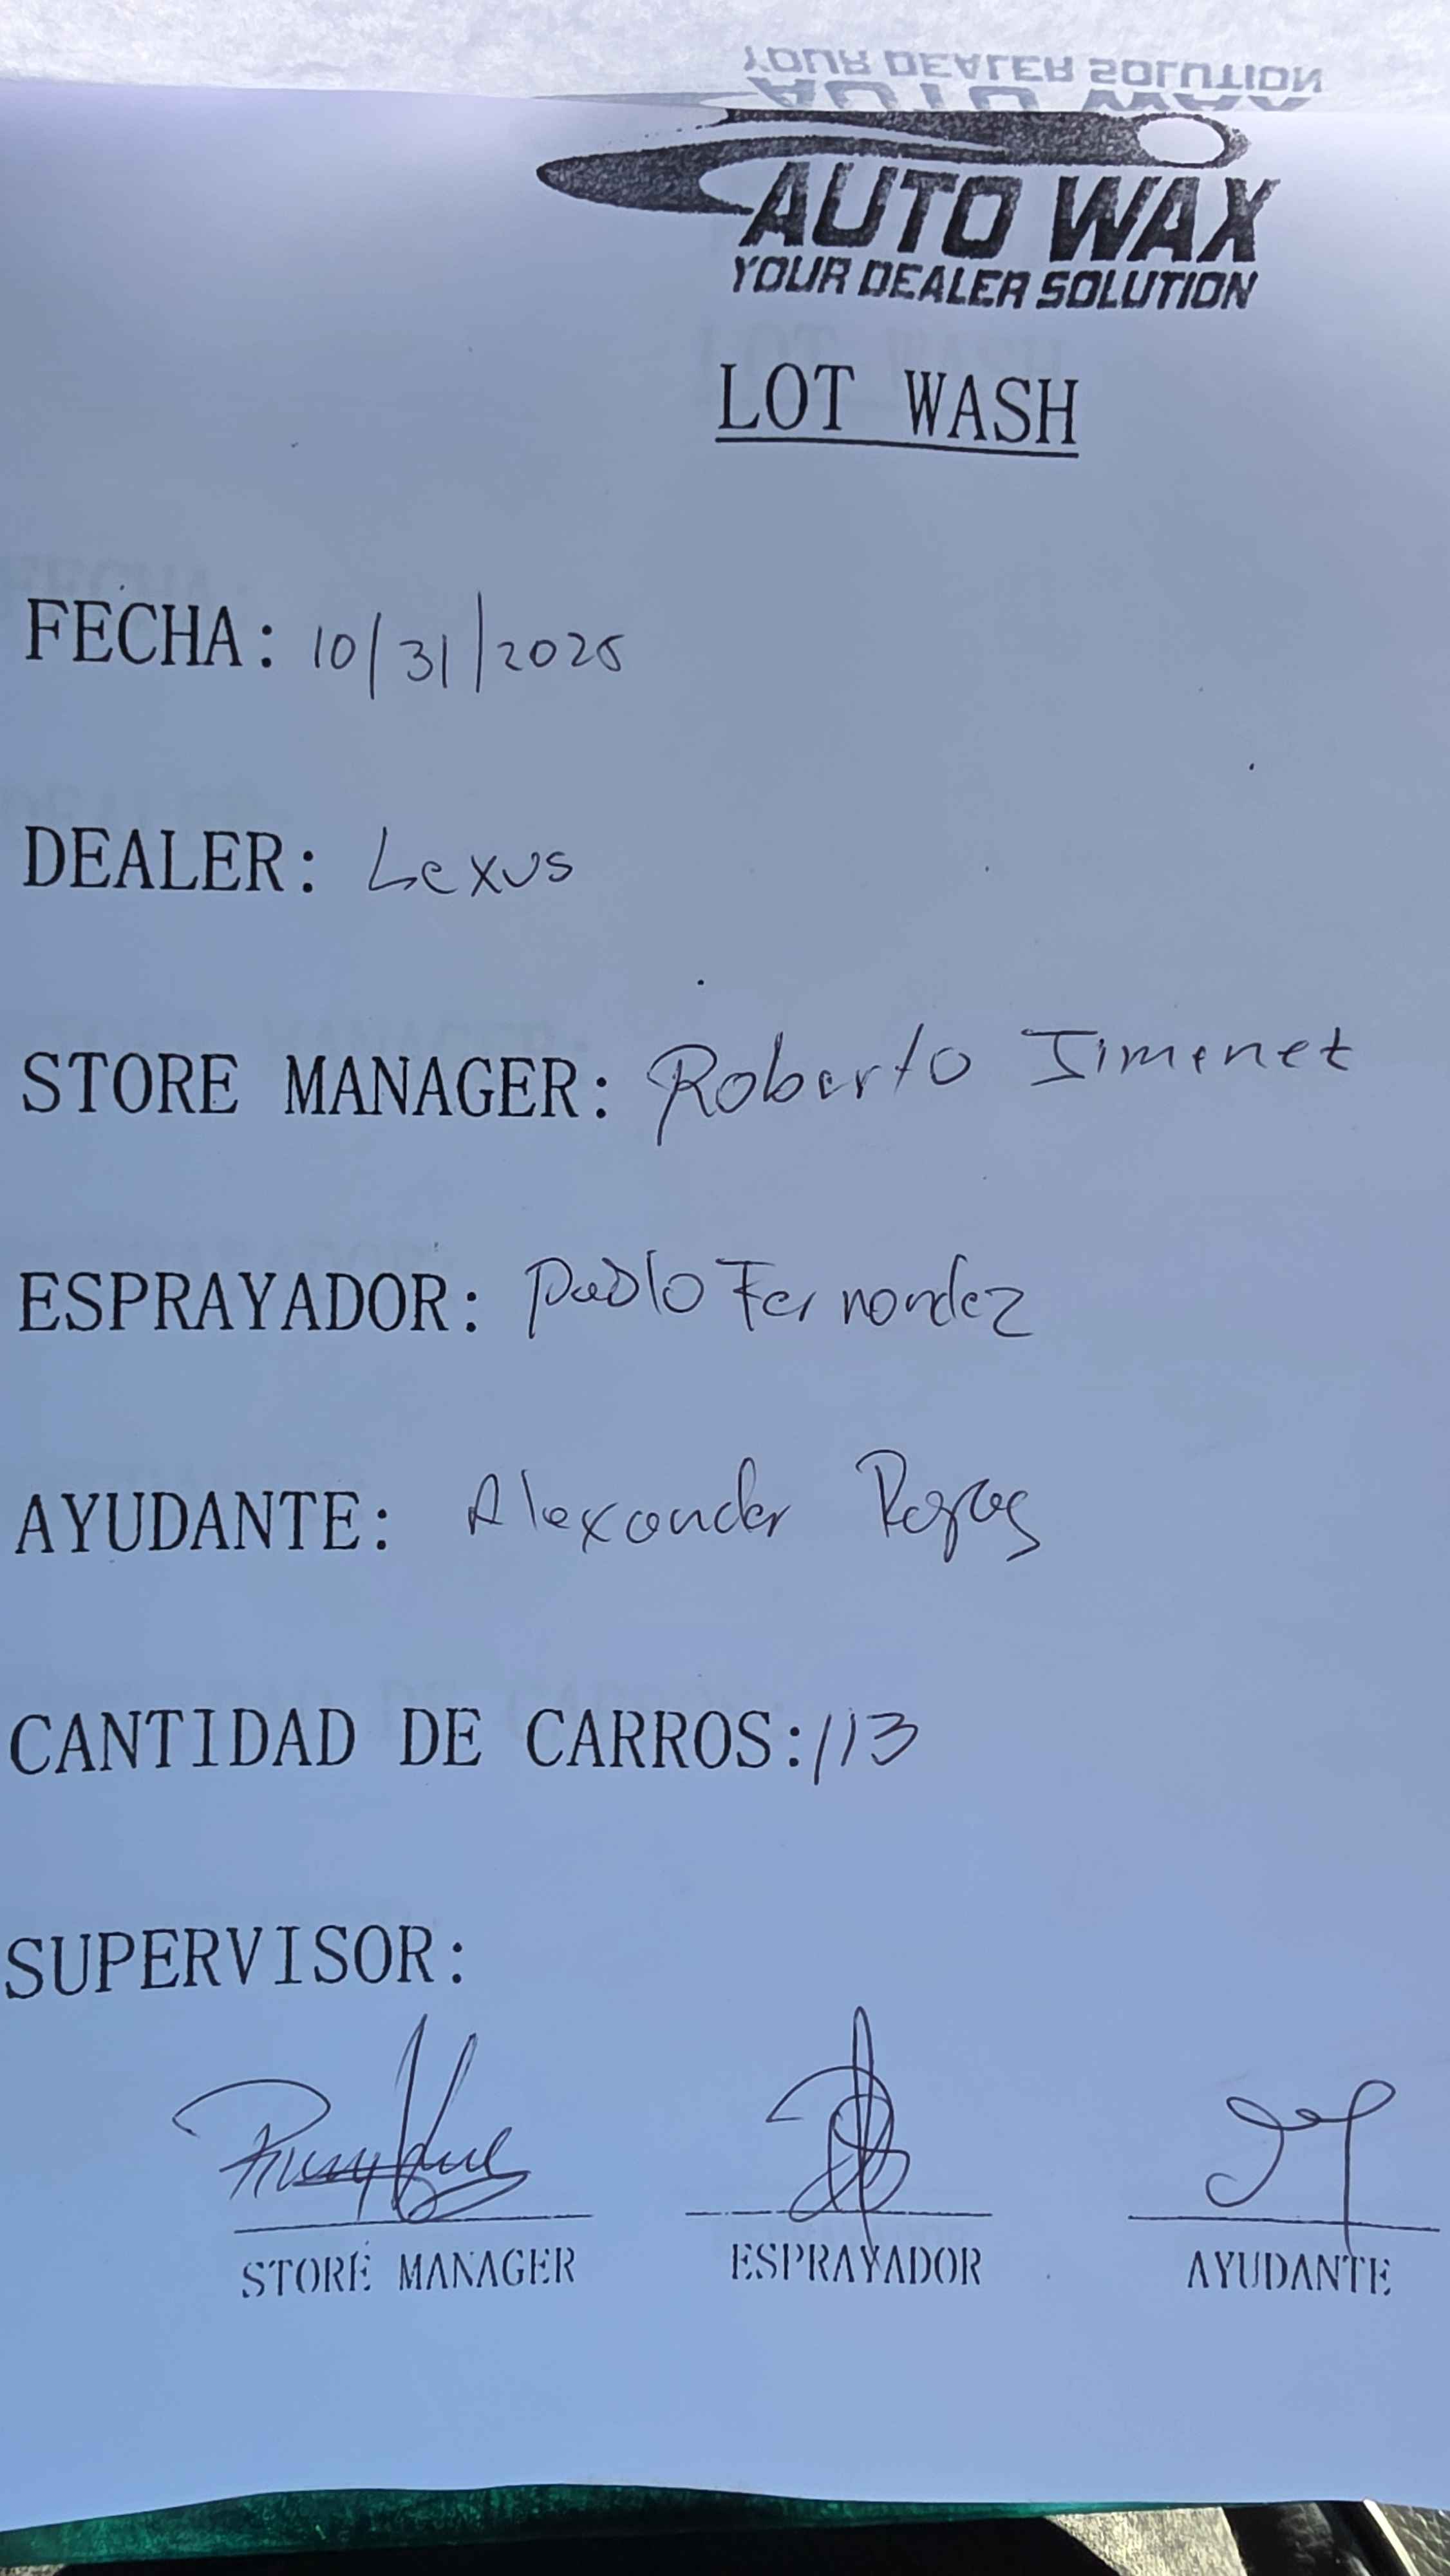 AUTO WAX
YOUR DEALER SOLUTION
LOT WASH
FECHA: 10/31/2025
DEALER: Lexus
STORE MANAGER: Roberto Jimenez
ESPRAYADOR: Pablo Fernandez
AYUDANTE: Alexander Rojas
CANTIDAD DE CARROS: 113
SUPERVISOR:
STORE MANAGER ESPRAYADOR AYUDANTE